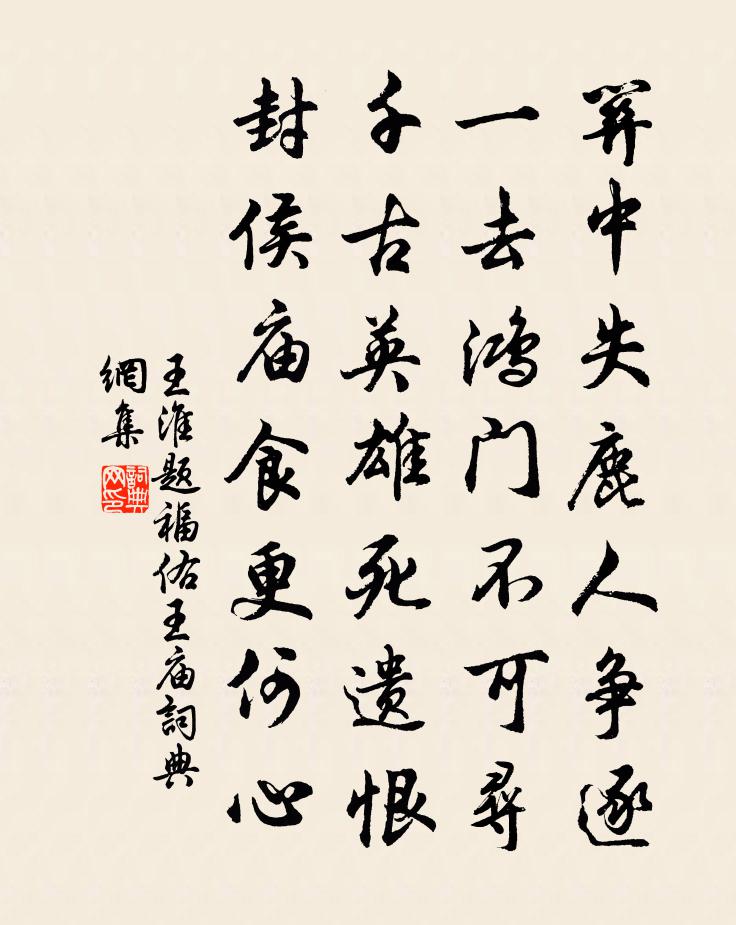 羿中失鹿人争逐
一去鸿门不可尋
千古英雄死遗恨
封侯庙食更何心
王淮题福佑王庙詞典
網集
詞典
网印